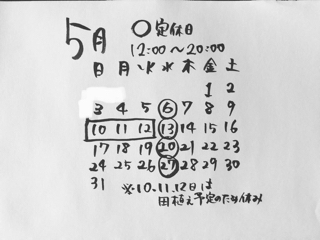 5月 ○定休日
12:00〜20:00
日 月 火 水 木 金 土
1 2
3 4 5 6 7 8 9
10 11 12 13 14 15 16
17 18 19 20 21 22 23
24 25 26 27 28 29 30
31 ※10.11.12日は
田植え予定のため休み